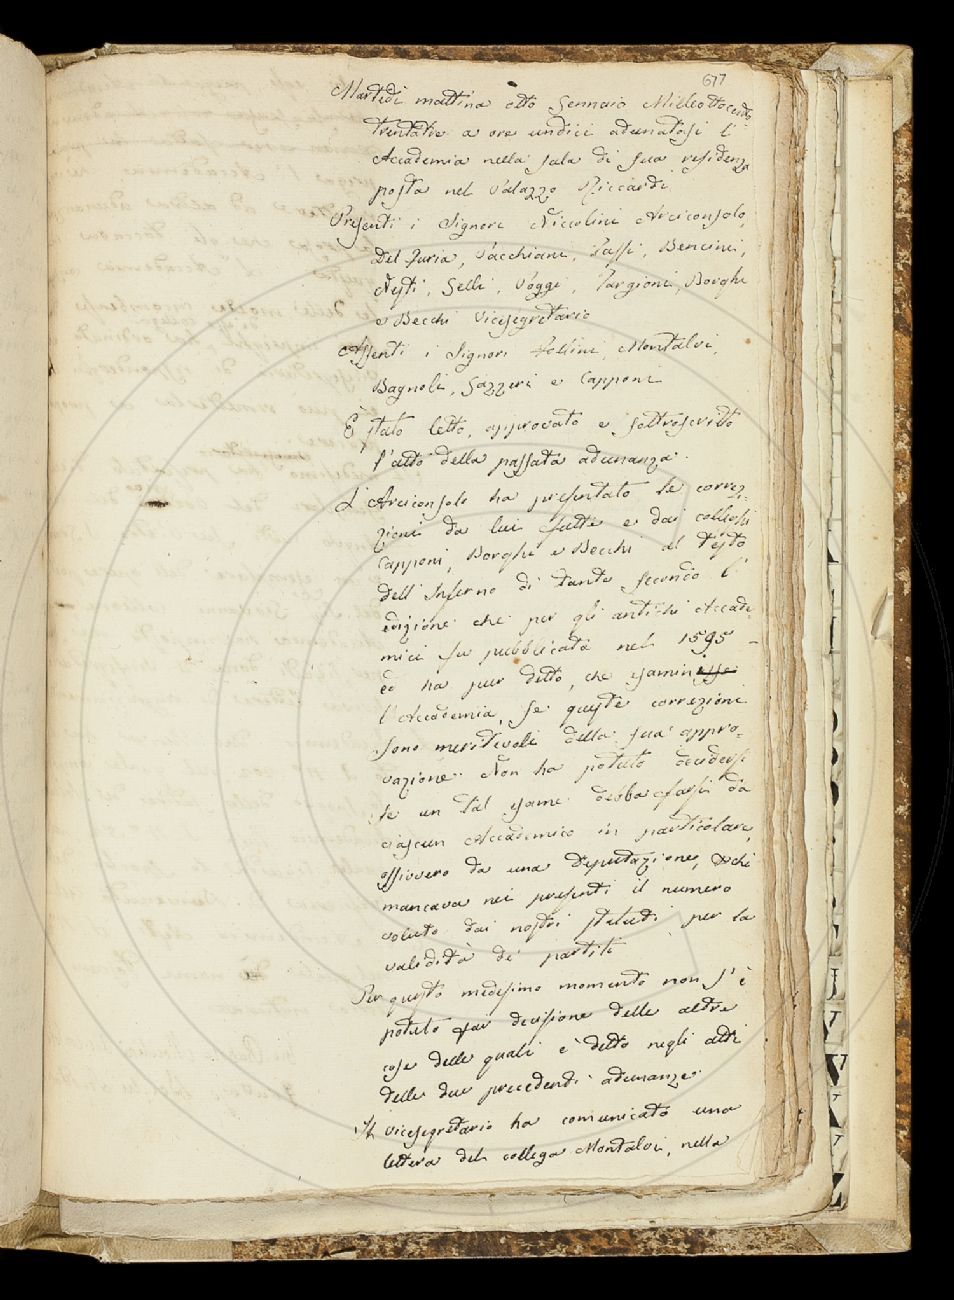 677
Martedì mattina otto Gennaio Milleottocento
trentatre a ore undici adunatasi l'
Accademia nella sala di sua residenza
posta nel Palazzo Riccardi
Presenti i Signori Niccolini Arciconsolo,
Del Furia, Vacchiani, Passi, Bencini,
Nesti, Gelli, Poggi, Targioni, Borghi
e Becchi Vicesegretario
Assenti i Signori Follini, Montalvi,
Bagnoli, Gazzeri e Capponi
È stato letto, approvato e sottoscritto
l'atto della passata adunanza.
L'Arciconsolo ha presentato le correz-
zioni da lui fatte e dai colleghi
Capponi, Borghi e Becchi al testo
dell'Inferno di Dante secondo l'
edizione che per gli antichi Accade-
mici fu pubblicata nel 1595 -
ed ha pur detto, che esamin
l'Accademia, se queste correzioni
sono meritevoli della sua appro-
vazione. Non ha potuto decidersi
se un tal esame debba farsi da
ciascun Accademico in particolare,
ossivvero da una Deputazione, chè
mancava nei presenti il numero
voluto dai nostri statuti per la
validità de' partiti
Per questo medesimo momento non s'è
potuto far decisione delle altre
cose delle quali è detto negli atti
delle due precedenti adunanze.
Il vicesegretario ha comunicato una
lettera del collega Montalvi, nella